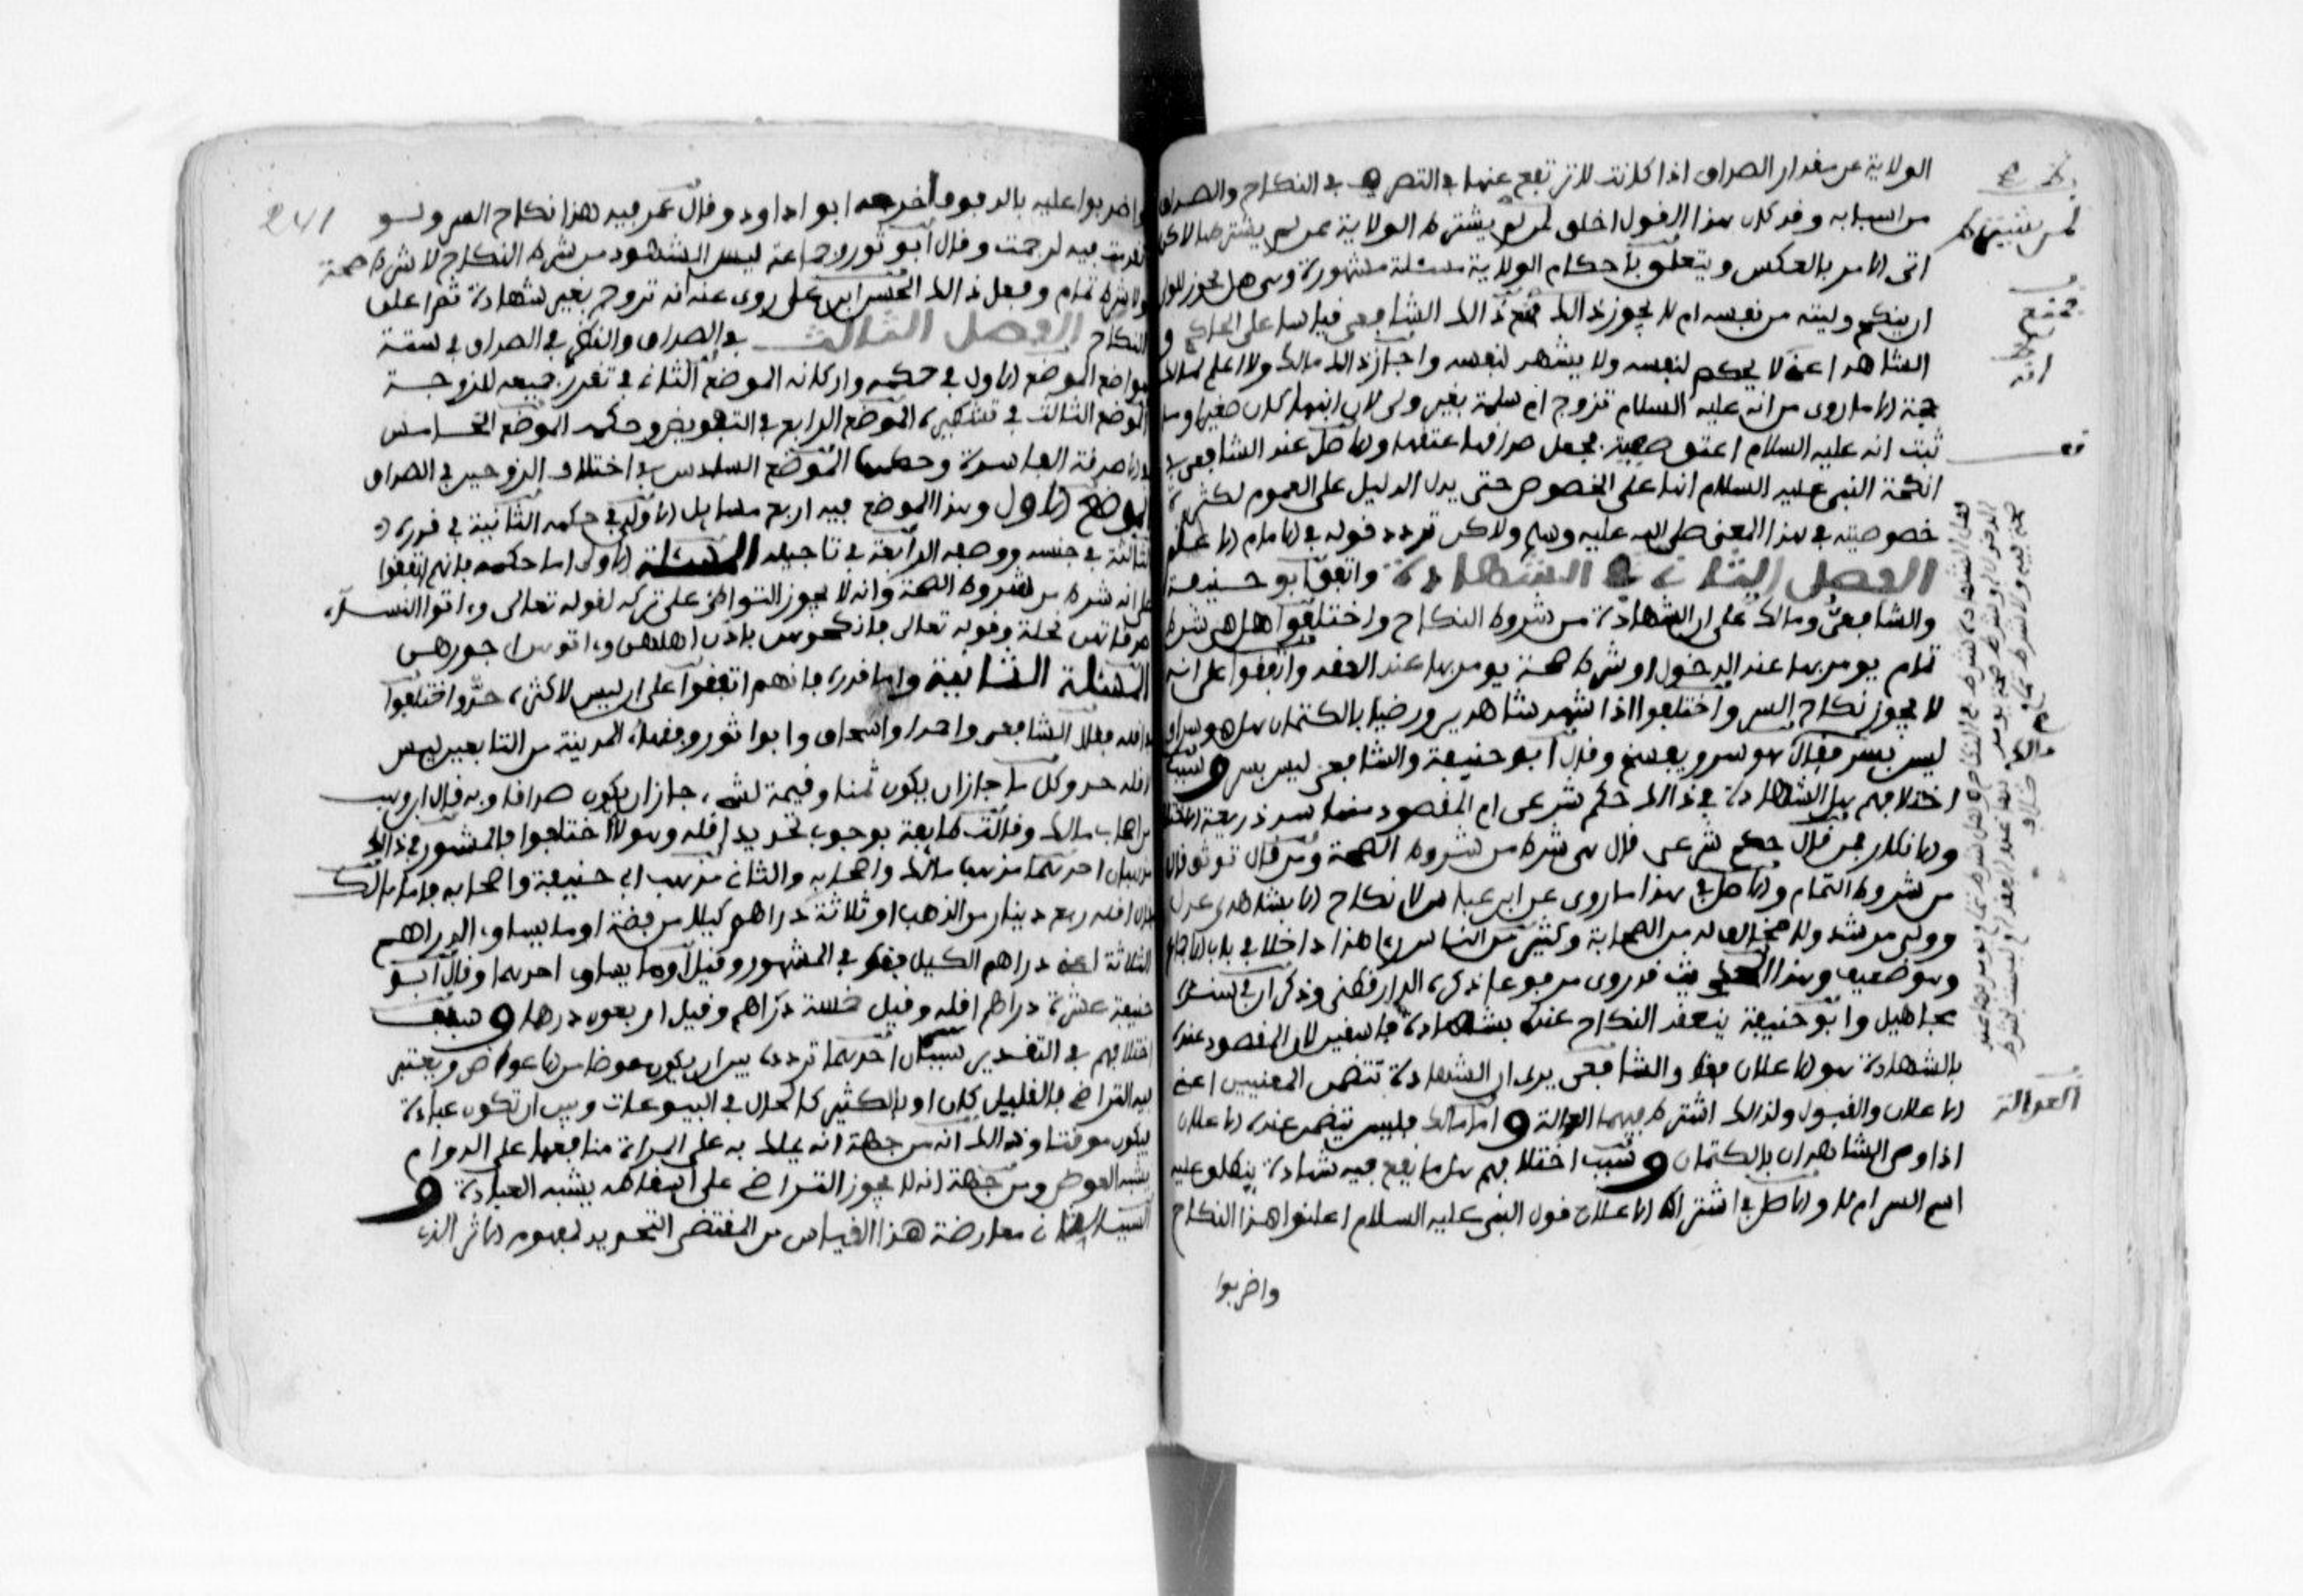 الولاية عن مقدار الصداق اذا كانت لا ترتفع عنها في التصرف في النكاح والصداق
من اسبابه وقد كان هذا القول اخلق لمن لم يشترط الولاية ممن لم يشترطها لاكن
اتى الامر بالعكس ويتعلق باحكام الولاية مسئلة مشهورة وهي هل يجوز للولي
ان ينكح وليته من نفسه ام لا يجوز ذالك فمنع ذالك الشافعي قياسا على الحاكم و
الشاهد اعني لا يحكم لنفسه ولا يشهد لنفسه واجاز ذالك مالك ولا اعلم لمالك
حجة الا ما روي من انه عليه السلام تزوج ام سلمة بغير ولي لان ابنها كان صغيرا وما
ثبت انه عليه السلام اعتق صفية فجعل صداقها عتقها والاصل عند الشافعي في
انكحة النبي عليه السلام انها على الخصوص حتى يدل الدليل على العموم لكثرة
خصوصيته في هذا المعنى صلى الله عليه وسلم ولاكن تردد قوله في الامام الاعظم
الفصل الثاني في الشهادة واتفق ابو حنيفة
والشافعي ومالك على ان الشهادة من شروط النكاح واختلفوا هل هي شرط
تمام يومر بها عند الدخول او شرط صحة يومر بها عند العقد واتفقوا على انه
لا يجوز نكاح السر واختلفوا اذا شهد شاهدين ورضيا بالكتمان هل هو سر او
ليس بسر فقال هو سر ويفسخ وقال ابو حنيفة والشافعي ليس بسر وسبب
اختلافهم هل الشهادة في ذالك حكم شرعي ام المقصود منها سد ذريعة الاختلاف
والانكار فمن قال حكم شرعي قال هي شرط من شروط الصحة ومن قال توثق قال
من شروط التمام والاصل في هذا ما روي عن ابن عباس لا نكاح الا بشاهدي عدل
وولي مرشد ولا مخالف له من الصحابة وكثير من الناس راى هذا داخلا في باب الاجماع
وهو ضعيف وهذا الحديث قد روي مرفوعا ذكره الدارقطني وذكر ان في سنده
مجاهيل وابو حنيفة ينعقد النكاح عنده بشهادة فاسقين لان المقصود عنده
بالشهادة هو الاعلان فقط والشافعي يرى ان الشهادة تتضمن المعنيين اعني
الاعلان والقبول ولذالك اشترط فيهما العدالة واما مالك فليس تتضمن عنده الاعلان
اذا وصي الشاهدان بالكتمان وسبب اختلافهم هل ما تقع فيه شهادة ينطلق عليه
اسم السر ام لا والاصل في اشتراط الاعلان قول النبي عليه السلام اعلنوا هذا النكاح
واضربوا
لم يشترط
فمنع
انه
العدالة
241
واضربوا عليه بالدفوف اخرجه ابو داود وقال عمر فيه هذا نكاح السر ولو
تقدمت فيه لرجمت وقال ابو ثور وجماعة ليس الشهود من شرط النكاح لا شرط صحة
ولا شرط تمام وفعل ذالك الحسن ابن علي روي عنه انه تزوج بغير شهادة ثم اعلن
النكاح الفصل الثالث في الصداق والنظر في الصداق في ستة
مواضع الموضع الاول في حكمه واركانه الموضع الثاني في تقرر جميعه للزوجة
الموضع الثالث في تشطيره الموضع الرابع في التفويض وحكمه الموضع الخامس
الاصدقة الفاسدة وحكمها الموضع السادس في اختلاف الزوجين في الصداق
الموضع الاول وهذا الموضع فيه اربع مسايل الاولى في حكمه الثانية في قدره
الثالثة في جنسه ووصفه الرابعة في تاجيله المسئلة الاولى اما حكمه فانهم اتفقوا
على انه شرط من شروط الصحة وانه لا يجوز التواطئ على تركه لقوله تعالى واتوا النساء
صدقاتهن نحلة وقوله تعالى فانكحوهن باذن اهلهن واتوهن اجورهن
المسئلة الثانية واما قدره فانهم اتفقوا على ان ليس لاكثره حد واختلفوا
في اقله فقال الشافعي واحمد واسحاق وابو ثور وفقهاء المدينة من التابعين ليس
لاقله حد وكل ما جاز ان يكون ثمنا وقيمة لشيء جاز ان يكون صداقا وبه قال ابن وهب
من اصحاب مالك وقالت طايفة بوجوب تحديد اقله وهولاء اختلفوا فالمشهور في ذالك
مذهبان احدهما مذهب مالك واصحابه والثاني مذهب ابي حنيفة واصحابه فاما مالك
فقال اقله ربع دينار من الذهب او ثلاثة دراهم كيلا من فضة او ما يساوي الدراهم
الثلاثة اعني دراهم الكيل فقط في المشهور وقيل او ما يساوي احدهما وقال ابو
حنيفة عشرة دراهم اقله وقيل خمسة دراهم وقيل اربعون درهما وسبب
اختلافهم في التقدير سببان احدهما تردده بين ان يكون عوضا من الاعواض ويعتبر
فيه التراضي بالقليل كان او بالكثير كالحال في البيوعات وبين ان تكون عبادة
فيكون موقتا وذالك انه من جهة انه يملك به على المراة منافعها على الدوام
يشبه العوض ومن جهة انه لا يجوز التراضي على اسقاطه يشبه العبادة و
السبب الثاني معارضة هذا القياس من المقتضي التحديد لمفهوم الاثر الذي